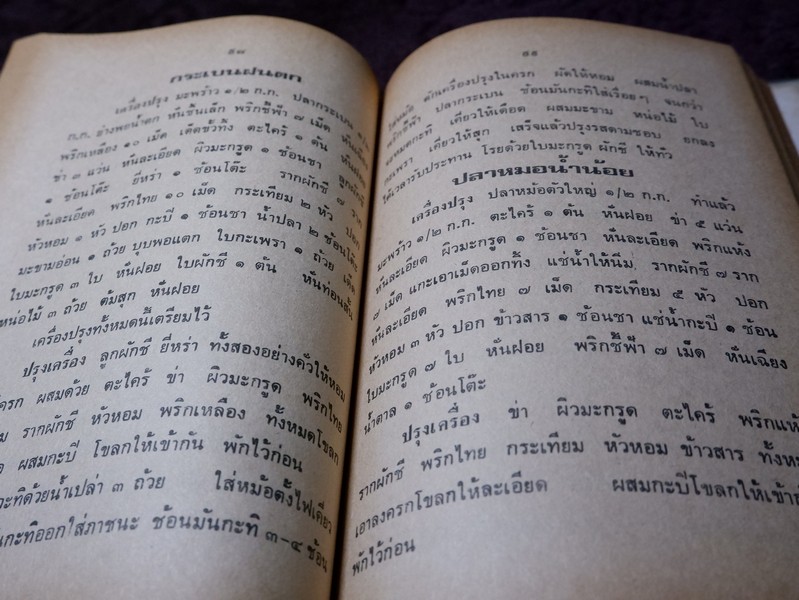 ๕๗
กระเบนฝนตก
เครื่องปรุง มะพร้าว ๑/๒ ก.ก. ปลากระเบน ๑/๒
ก.ก. ย่างพอน้ำตก หั่นชิ้นเล็ก พริกชี้ฟ้า ๗ เม็ด หั่นเฉียง
พริกเหลือง ๑๐ เม็ด เด็ดขั้วทิ้ง ตะไคร้ ๑ ต้น หั่นฝอย
ข่า ๓ แว่น หั่นละเอียด ผิวมะกรูด ๑ ช้อนชา ลูกผักชี
๑ ช้อนโต๊ะ ยี่หร่า ๑ ช้อนโต๊ะ รากผักชี ๗ ราก
หั่นละเอียด พริกไทย ๑๐ เม็ด กระเทียม ๒ หัว ปอก
หัวหอม ๑ หัว ปอก กะปิ ๑ ช้อนชา น้ำปลา ๒ ช้อนโต๊ะ
มะขามอ่อน ๑ ถ้วย บุบพอแตก ใบกะเพรา ๑ ถ้วย เด็ด
ใบมะกรูด ๓ ใบ หั่นฝอย ใบผักชี ๑ ต้น หั่นท่อนสั้น
หน่อไม้ ๓ ถ้วย ต้มสุก หั่นฝอย
เครื่องปรุงทั้งหมดนี้เตรียมไว้
ปรุงเครื่อง ลูกผักชี ยี่หร่า ทั้งสองอย่างคั่วให้หอม
ครก ผสมด้วย ตะไคร้ ข่า ผิวมะกรูด พริกไทย
รากผักชี หัวหอม พริกเหลือง ทั้งหมดโขลก
ผสมกะปิ โขลกให้เข้ากัน พักไว้ก่อน
กะทิด้วยน้ำเปล่า ๓ ถ้วย ใส่หม้อตั้งไฟเคี่ยว
กะทิออกใส่ภาชนะ ช้อนมันกะทิ ๓-๔ ช้อน
๕๘
ใส่หม้อ ตักเครื่องปรุงในครก ผัดให้หอม ผสมน้ำปลา
พริกชี้ฟ้า ปลากระเบน ช้อนมันกะทิใส่เรื่อยๆ จนกว่า
จะหมดกะทิ เคี่ยวให้เดือด ผสมมะขาม หน่อไม้ ใบ
กะเพรา เคี่ยวให้สุก เสร็จแล้วปรุงรสตามชอบ ยกลง
ใช้เวลารับประทาน โรยด้วยใบมะกรูด ผักชี ให้ทั่ว
ปลาหมอน้ำน้อย
เครื่องปรุง ปลาหม้อตัวใหญ่ ๑/๒ ก.ก. ทำแล้ว
มะพร้าว ๑/๒ ก.ก. ตะไคร้ ๑ ต้น หั่นฝอย ข่า ๕ แว่น
หั่นละเอียด ผิวมะกรูด ๑ ช้อนชา หั่นละเอียด พริกแห้ง
๗ เม็ด แกะเอาเม็ดออกทิ้ง แช่น้ำให้นิ่ม รากผักชี ๗ ราก
หั่นละเอียด พริกไทย ๗ เม็ด กระเทียม ๕ หัว ปอก
หัวหอม ๓ หัว ปอก ข้าวสาร ๑ ช้อนชา แช่น้ำกะปิ ๑ ช้อน
ใบมะกรูด ๗ ใบ หั่นฝอย พริกชี้ฟ้า ๗ เม็ด หั่นเฉียง
น้ำตาล ๑ ช้อนโต๊ะ
ปรุงเครื่อง ข่า ผิวมะกรูด ตะไคร้ พริกแห้ง
รากผักชี พริกไทย กระเทียม หัวหอม ข้าวสาร
เอาลงครกโขลกให้ละเอียด ผสมกะปิโขลกให้เข้า
พักไว้ก่อน